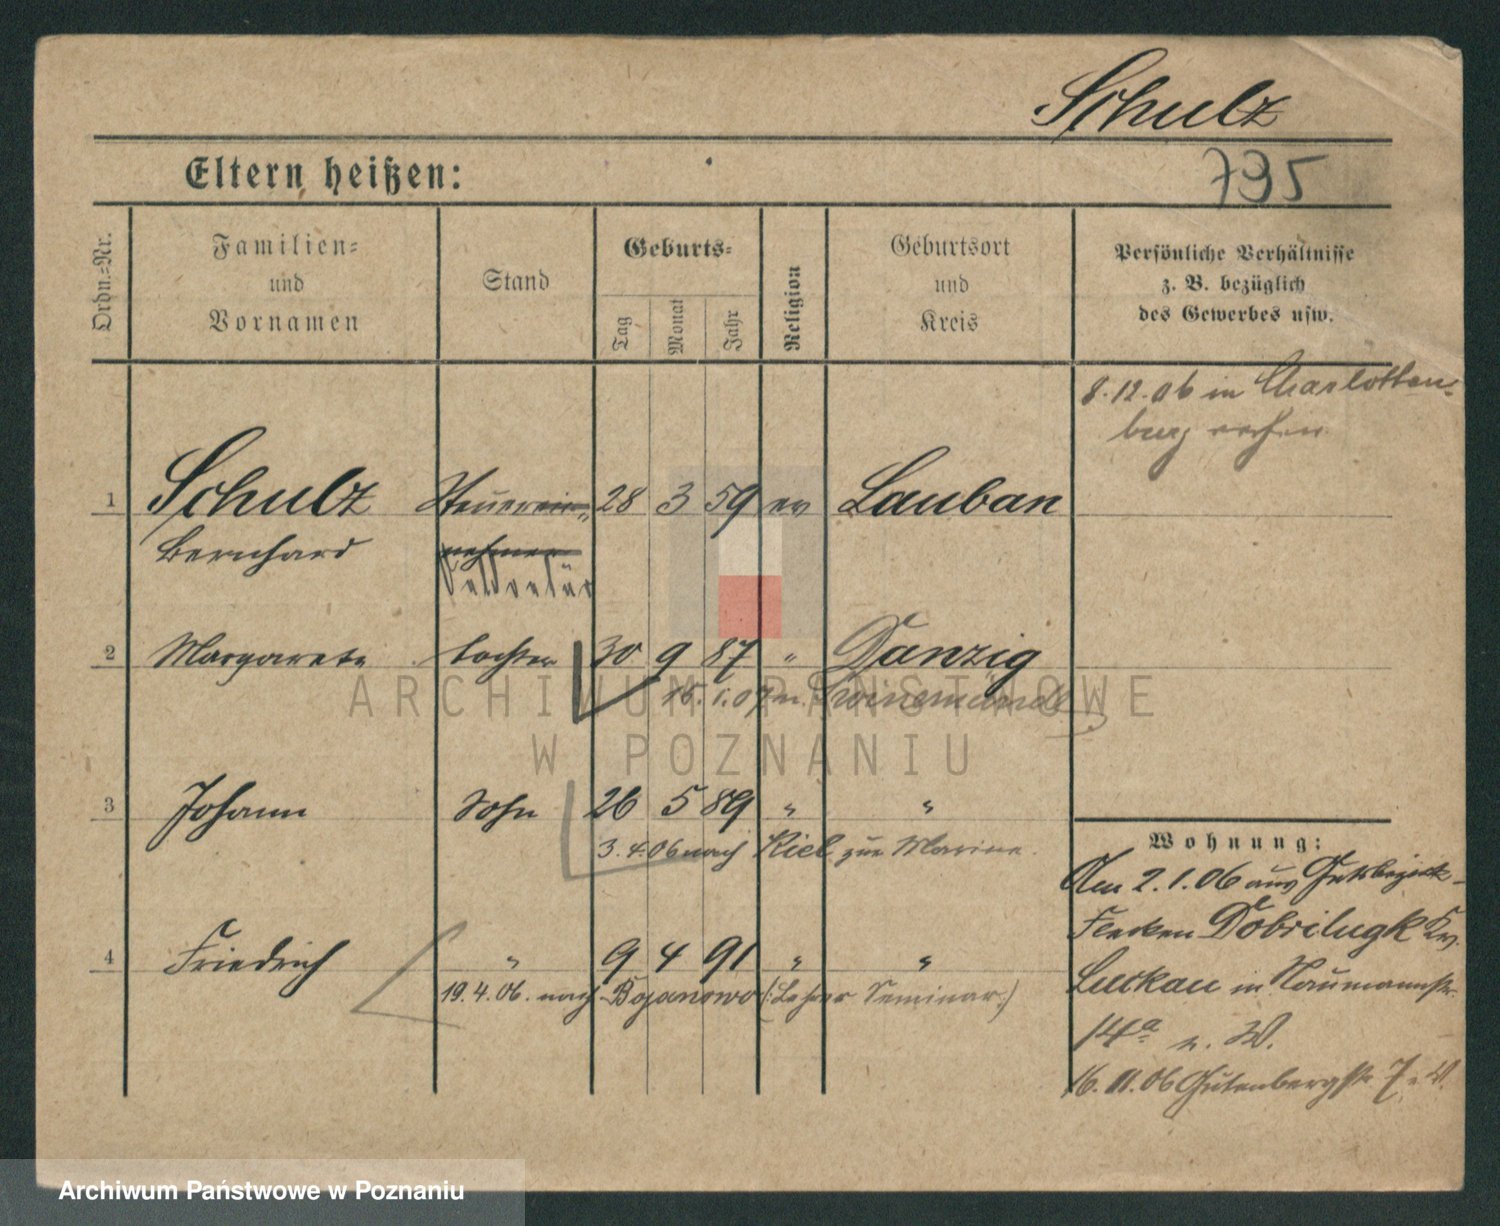 Schulz
Eltern heißen:
795
Ordn.-Nr.
Familien-
und
Vornamen
Stand
Geburts-
Tag
Monat
Jahr
Religion
Geburtsort
und
Kreis
Persönliche Verhältnisse
z. B. bezüglich
des Gewerbes usw.
8.12.06 in Charlotten-
burg
1 Schulz Steuerein- 28 3 59 ev Lauban
Bernhard nehmer
Sekretär
2 Margarete Tochter 30 9 87 " Danzig
15.1.07 n. Swinemünde
3 Johann Sohn 26 5 89 " "
3.4.06 nach Kiel zur Marine.
4 Friedrich " 9 4 91 " "
19.4.06. nach Bojanowo (: Lehrer Seminar :)
Wohnung:
Am 2.1.06 aus Gutsbezirk-
Flecken Dobrilugk Kr.
Luckau in Naumannstr.
14a n. W.
16.11.06 Gutenbergstr. 7 n. W.
ARCHIWUM PAŃSTWOWE
W POZNANIU
Archiwum Państwowe w Poznaniu